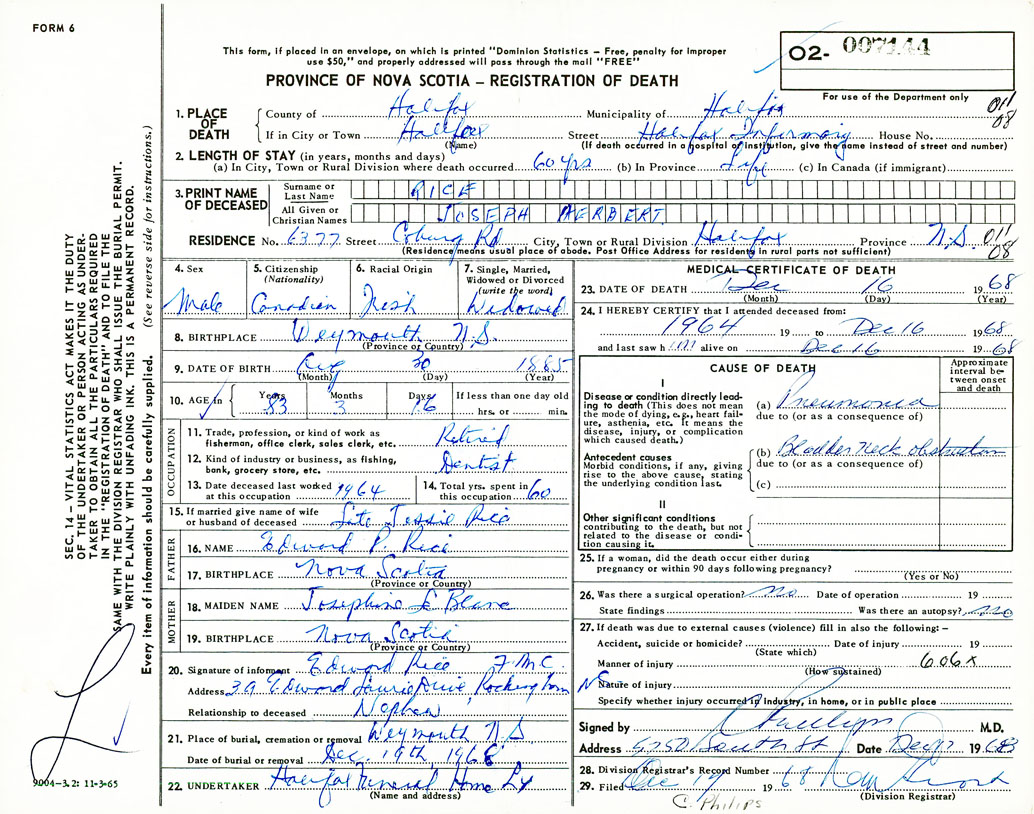 FORM 6
This form, if placed in an envelope, on which is printed "Dominion Statistics – Free, penalty for improper
use $50," and properly addressed will pass through the mail "FREE"
PROVINCE OF NOVA SCOTIA – REGISTRATION OF DEATH
02- 007144
For use of the Department only
011
08
1. PLACE OF DEATH
County of Halifax Municipality of Halifax
If in City or Town Halifax Street Halifax Infirmary House No.
(Name) (If death occurred in a hospital or institution, give the name instead of street and number)
2. LENGTH OF STAY (in years, months and days)
(a) In City, Town or Rural Division where death occurred 60 yrs (b) In Province Life (c) In Canada (if immigrant)
3. PRINT NAME OF DECEASED
Surname or Last Name RICE
All Given or Christian Names JOSEPH HERBERT
RESIDENCE No. 6377 Street Coburg Rd City, Town or Rural Division Halifax Province N.S. 011
08
(Residence means usual place of abode. Post Office Address for residents in rural parts not sufficient)
4. Sex
Male
5. Citizenship
(Nationality)
Canadian
6. Racial Origin
Irish
7. Single, Married, Widowed or Divorced
(write the word)
Widowed
8. BIRTHPLACE Weymouth N.S.
(Province or Country)
9. DATE OF BIRTH Aug 30 1885
(Month) (Day) (Year)
10. AGE in Years 83 Months 3 Days 16 If less than one day old
hrs. or min.
OCCUPATION
11. Trade, profession, or kind of work as
fisherman, office clerk, sales clerk, etc. Retired
12. Kind of industry or business, as fishing,
bank, grocery store, etc. Dentist
13. Date deceased last worked
at this occupation 1964
14. Total yrs. spent in
this occupation 60
15. If married give name of wife
or husband of deceased Late Jessie Rice
FATHER
16. NAME Edward P. Rice
17. BIRTHPLACE Nova Scotia
(Province or Country)
MOTHER
18. MAIDEN NAME Josephine Le Blanc
19. BIRTHPLACE Nova Scotia
(Province or Country)
20. Signature of informant Edward Rice F.M.C.
Address 39 Edward Laurie Drive, Rockingham
Relationship to deceased Nephew
21. Place of burial, cremation or removal Weymouth N S
Date of burial or removal Dec. 19th, 1968
22. UNDERTAKER Halifax Funeral Home
(Name and address)
MEDICAL CERTIFICATE OF DEATH
23. DATE OF DEATH Dec 16 1968
(Month) (Day) (Year)
24. I HEREBY CERTIFY that I attended deceased from:
1964 19 to Dec 16 1968
and last saw him alive on Dec 16 1968
CAUSE OF DEATH
Approximate interval between onset and death
I
Disease or condition directly leading to death (This does not mean the mode of dying, e.g., heart failure, asthenia, etc. It means the disease, injury, or complication which caused death.)
(a) Pneumonia
due to (or as a consequence of)
Antecedent causes
Morbid conditions, if any, giving rise to the above cause, stating the underlying condition last.
(b) Bladder neck obstruction
due to (or as a consequence of)
(c)
II
Other significant conditions
contributing to the death, but not related to the disease or condition causing it.
25. If a woman, did the death occur either during
pregnancy or within 90 days following pregnancy?
(Yes or No)
26. Was there a surgical operation? no Date of operation 19
State findings Was there an autopsy? no
27. If death was due to external causes (violence) fill in also the following: –
Accident, suicide or homicide? Date of injury 19
(State which)
Manner of injury 606x
(How sustained)
Nature of injury
Specify whether injury occurred in industry, in home, or in public place
Signed by M.D.
Address South St Date Dec 17 1968
28. Division Registrar's Record Number
29. Filed Dec 19 1968
(Division Registrar)
C. Philips
SEC. 14 – VITAL STATISTICS ACT MAKES IT THE DUTY
OF THE UNDERTAKER OR PERSON ACTING AS UNDER-
TAKER TO OBTAIN ALL THE PARTICULARS REQUIRED
IN THE "REGISTRATION OF DEATH" AND TO FILE THE
SAME WITH THE DIVISION REGISTRAR WHO SHALL ISSUE THE BURIAL PERMIT.
WRITE PLAINLY WITH UNFADING INK. THIS IS A PERMANENT RECORD.
Every item of information should be carefully supplied. (See reverse side for instructions.)
9004-3.2: 11-3-65